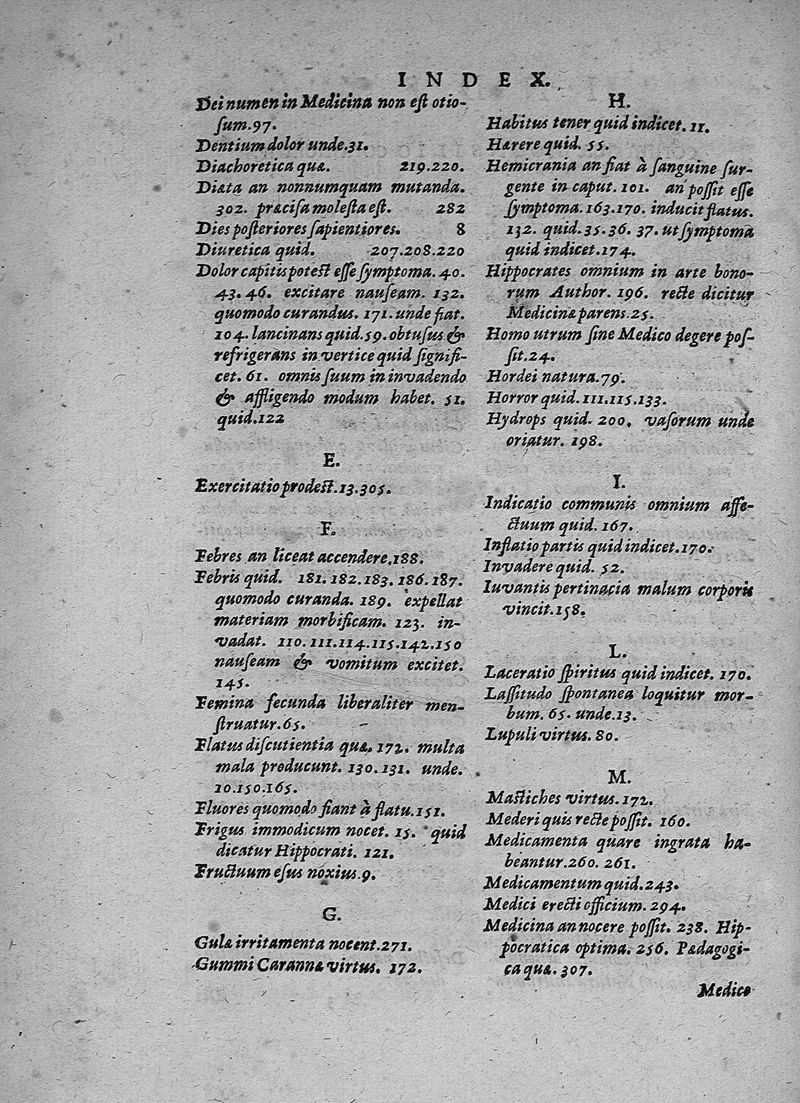 INDEX.
Dei numen in Medicina non est otio-
sum.97.
Dentium dolor unde.31.
Diachoretica quæ. 219.220.
Diæta an nonnumquam mutanda.
302. præcisa molesta est. 282
Dies posteriores sapientiores. 8
Diuretica quid. 207.208.220
Dolor capitis potest esse symptoma.40.
43.46. excitare nauseam. 132.
quomodo curandus. 171. unde fiat.
104. lancinans quid.59. obtusus &
refrigerans in vertice quid signifi-
cet. 61. omnis suum in invadendo
& affligendo modum habet. 51.
quid.122
E.
Exercitatio prodest.13.305.
F.
Febres an liceat accendere.188.
Febris quid. 181.182.183.186.187.
quomodo curanda. 189. expellat
materiam morbificam. 123. in-
vadat. 110.111.114.115.142.150
nauseam & vomitum excitet.
145.
Femina fecunda liberaliter men-
struatur.65.
Flatus discutientia quæ. 172. multa
mala producunt. 130.131. unde.
10.150.165.
Fluores quomodo fiant à flatu.151.
Frigus immodicum nocet. 15. quid
dicatur Hippocrati. 121.
Fructuum esus noxius.9.
G.
Gulæ irritamenta nocent.271.
Gummi Carannæ virtus. 172.
H.
Habitus tener quid indicet. 11.
Hærere quid. 55.
Hemicrania an fiat à sanguine sur-
gente in caput. 101. an possit esse
symptoma. 163.170. inducit flatus.
132. quid.35.36. 37. ut symptoma
quid indicet.174.
Hippocrates omnium in arte bono-
rum Author. 196. recte dicitur
Medicinæ parens.25.
Homo utrum sine Medico degere pos-
sit.24.
Hordei natura.79.
Horror quid. 111.115.133.
Hydrops quid. 200. vasorum unde
oriatur. 198.
I.
Indicatio communis omnium affe-
ctuum quid. 167.
Inflatio partis quid indicet.170.
Invadere quid. 52.
Iuvantis pertinacia malum corporis
vincit.158.
L.
Laceratio spiritus quid indicet. 170.
Lassitudo spontanea loquitur mor-
bum. 65. unde.13.
Lupuli virtus. 80.
M.
Mastiches virtus.172.
Mederi quis recte possit. 160.
Medicamenta quare ingrata ha-
beantur.260. 261.
Medicamentum quid.243.
Medici erecti officium. 294.
Medicina an nocere possit. 238. Hip-
pocratica optima. 256. Pædagogi-
ca quæ. 307.
Medico